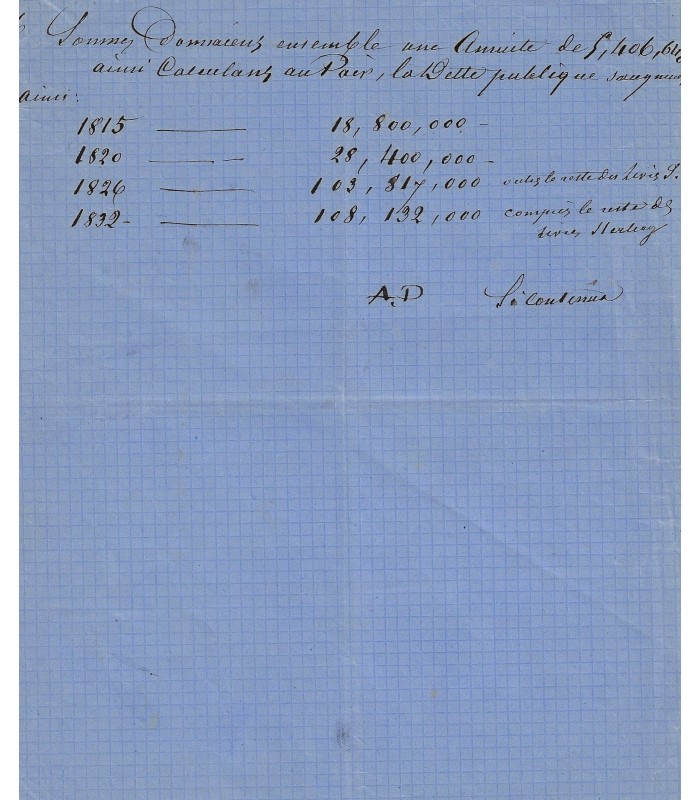 Sommes Donnaient ensemble une Annuité de 5,406,64
ainsi Calculant au Pair, la Dette publique s'augmen
ainsi:
1815 —— 18,800,000 -
1820 —— - 28,400,000 -
1826 —— 103,817,000 outre le reste des Livres S.
1832 - —— 108,132,000 compris le reste des
Livres Sterling
A.D